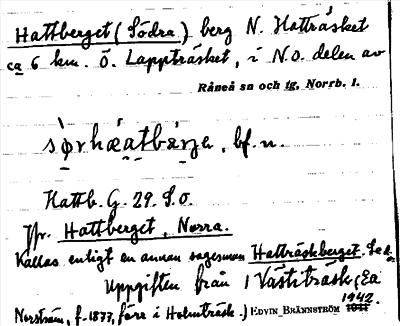 Hattberget (Södra) berg N. Hatträsket
ca 6 km. Ö. Lappträsket, i N.O. delen av
Råneå sn och tg, Norrb. l.
bf. n.
Hattb. G. 29. S.O.
Jfr. Hattberget, Norra.
Kallas enligt en annan sagesman Hatträskberget.
Uppgiften från Västiträsk, (Ea
Norström, f. 1877, förr i Holmträsk.) EDVIN BRÄNNSTRÖM 1942.